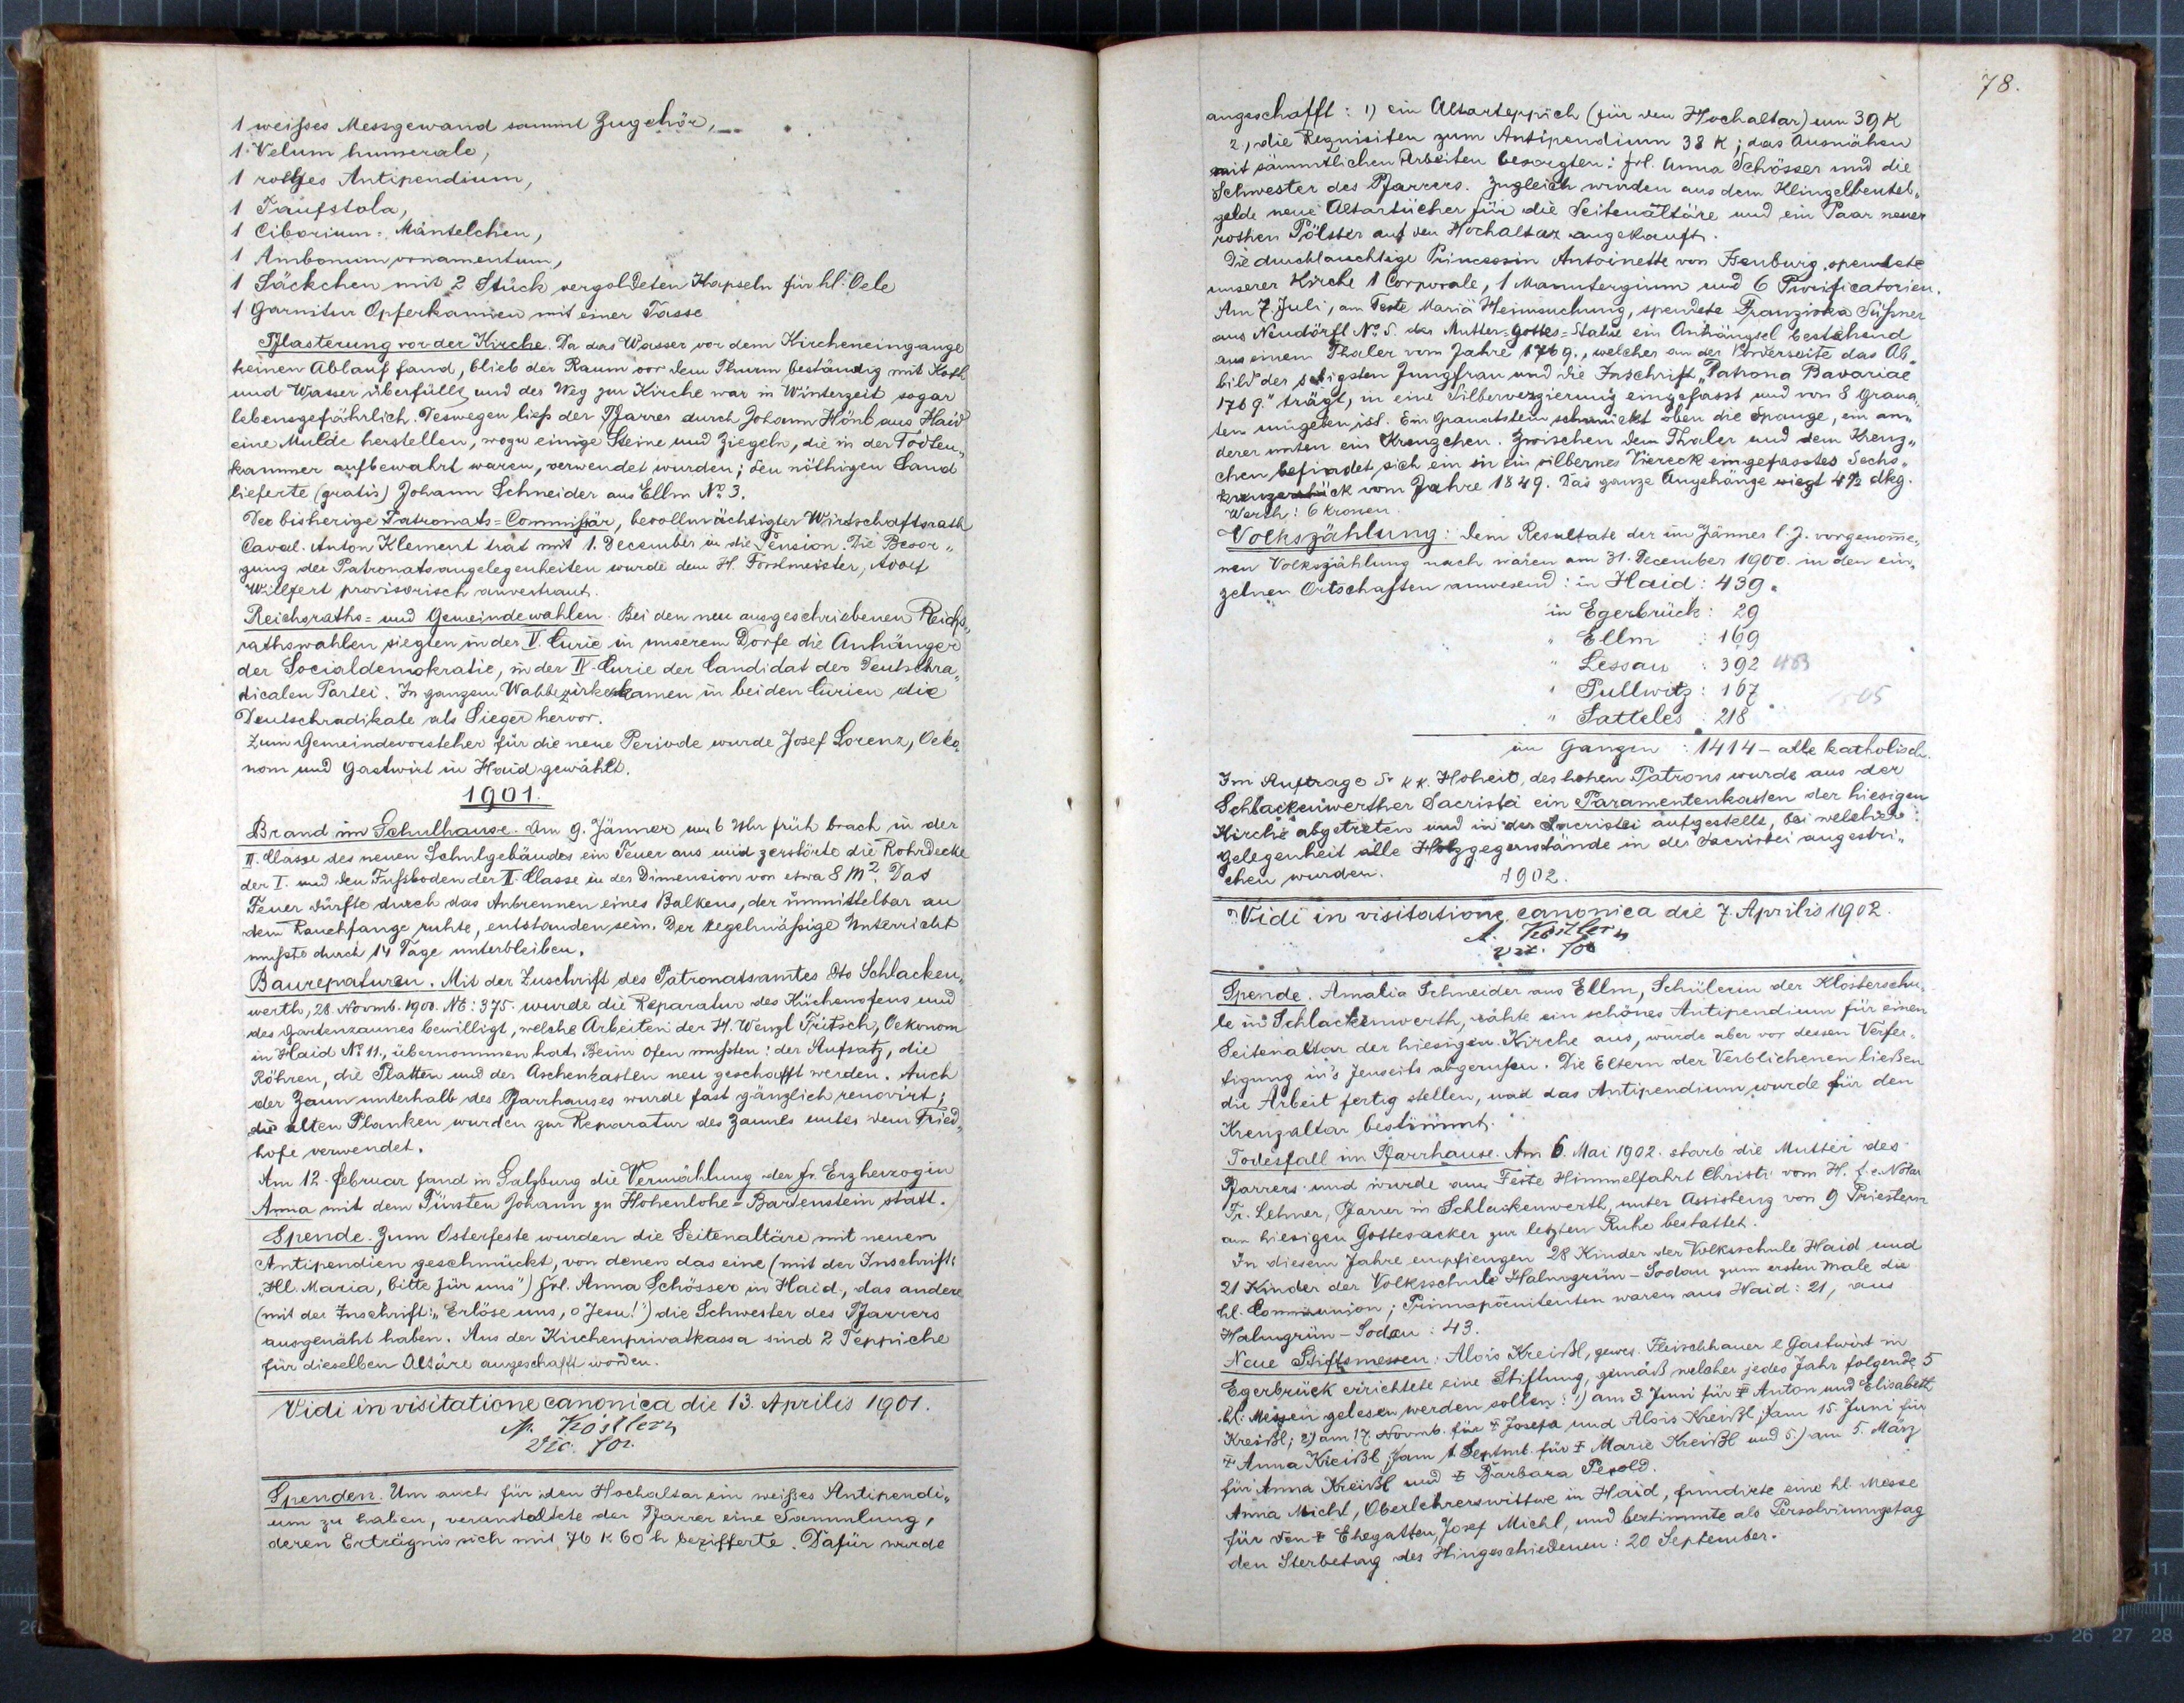 1 weißes Messgewand sammt Zugehör,
1 Velum humerale,
1 rothes Antipendium,
1 Taufstola,
1 Ciborium-Mäntelchen,
1 Ambonum ornamentum,
1 Säckchen mit 2 Stück vergoldeten Kapseln für hl. Oele
1 Garnitur Opferkannen mit einer Tasse
Pflasterung vor der Kirche. Da das Wasser vor dem Kircheneingange
keinen Ablauf fand, blieb der Raum vor dem Thurm beständig mit Koth
und Wasser überfüllt und der Weg zur Kirche war in Winterzeit sogar
lebensgefährlich. Deswegen ließ der Pfarrer durch Johann Hönl aus Haid
eine Mulde herstellen, wozu einige Steine und Ziegeln, die in der Todten„
kammer aufbewahrt waren, verwendet wurden; den nöthigen Sand
lieferte (gratis) Johann Schneider aus Ellm No 3.
Der bisherige Patronats-Commissär, bevollmächtigter Wirtschaftsrath
Caval. Anton Klement trat mit 1. December in die Pension. Die Besor„
gung der Patronatsangelegenheiten wurde dem H. Forstmeister, Adolf
Wilfert provisorisch anvertraut.
Reichsraths- und Gemeindewahlen. Bei den neu ausgeschriebenen Reichs„
rathswahlen siegten in der V. Curie in unserem Dorfe die Anhänger
der Socialdemokratie, in der IV. Curie der Candidat der Deutschra„
dicalen Partei. In ganzem Wahlbezirke kamen in beiden Curien die
Deutschradikale als Sieger hervor.
Zum Gemeindevorsteher für die neue Periode wurde Josef Lorenz, Oeko„
nom und Gastwirt in Haid gewählt.
1901.
Brand im Schulhause. Am 9. Jänner um 6 Uhr früh brach in der
II. Classe des neuen Schulgebäudes ein Feuer aus und zerstörte die Rohrdecke
der I. und den Fußboden der II. Classe in der Dimension von etwa 8 m². Das
Feuer dürfte durch das Anbrennen eines Balkens, der unmittelbar an
dem Rauchfange ruhte, entstanden sein. Der regelmäßige Unterricht
mußte durch 14 Tage unterbleiben.
Baureparaturen. Mit der Zuschrift des Patronatsamtes dto Schlacken„
werth, 28. Novmb. 1900. NE: 375. wurde die Reparatur des Küchenofens und
des Gartenzaunes bewilligt, welche Arbeiten der H. Wenzl Fritsch, Oekonom
in Haid No 11., übernommen hat. Beim Ofen mußten: der Aufsatz, die
Röhren, die Platten und der Aschenkasten neu geschafft werden. Auch
der Zaun unterhalb des Pfarrhauses wurde fast gänzlich renovirt;
die alten Planken wurden zur Reparatur des Zaunes unter dem Fried„
hofe verwendet.
Am 12. Februar fand in Salzburg die Vermählung der Fr. Erzherzogin
Anna mit dem Fürsten Johann zu Hohenlohe-Bartenstein statt.
Spende. Zum Osterfeste wurden die Seitenaltäre mit neuen
Antipendien geschmückt, von denen das eine (mit der Inschrift:
„Hl. Maria, bitte für uns") Frl. Anna Schösser in Haid, das andere
(mit der Inschrift: „Erlöse uns, o Jesu!") die Schwester des Pfarrers
ausgenäht haben. Aus der Kirchenprivatkassa sind 2 Teppiche
für dieselben Altäre angeschafft worden.
Vidi in visitatione canonica die 13. Aprilis 1901.
Köstlern
Vic. for.
Spenden. Um auch für den Hochaltar ein weißes Antipendi„
um zu haben, veranstaltete der Pfarrer eine Sammlung,
deren Erträgnis sich mit 76 K 60 h bezifferte. Dafür wurde
78.
angeschafft: 1) ein Altarteppich (für den Hochaltar) um 39 K
2, die Requisiten zum Antipendium 38 K; das Ausnähen
mit sämmtlichen Arbeiten besorgten: Frl. Anna Schösser und die
Schwester des Pfarrers. Zugleich wurden aus dem Klingelbeutel„
gelde neue Altartücher für die Seitenaltäre und ein Paar neuer
rothen Pölster auf den Hochaltar angekauft.
Die durchlauchtige Princessin Antoinette von Isenburg spendete
unserer Kirche 1 Corporale, 1 Manutergium und 6 Purificatorien.
Am 7. Juli, am Feste Mariä Heimsuchung, spendete Franziska Süßner
aus Neudörfl No 5. der Mutter-Gottes-Statue ein Anhängsel bestehend
aus einem Thaler vom Jahre 1769., welcher an der Vorderseite das Ab„
bild der seligsten Jungfrau und die Inschrift „Patrona Bavariae
1769." trägt, in eine Silberverzierung eingefasst und von 8 Grana„
ten umgeben ist. Ein Granatstein schmückt oben die Spange, ein an„
derer unten ein Kreuzchen. Zwischen dem Thaler und dem Kreuz„
chen befindet sich ein in ein silbernes Viereck eingefasstes Sechs„
kreuzerstück vom Jahre 1849. Das ganze Angehänge wiegt 4½ dkg.
Werth: 6 Kronen.
Volkszählung: Dem Resultate der im Jänner l. J. vorgenom̄e„
nen Volkszählung nach waren am 31. December 1900. in den ein„
zelnen Ortschaften anwesend: in Haid: 439.
in Egerbrück: 29
" Ellm : 169
" Lessau : 392
" Pullwitz: 167
" Satteles : 218
im Ganzen : 1414 – alle katholisch.
Im Auftrage Sr k k. Hoheit, des hohen Patrons wurde aus der
Schlackenwerther Sacristei ein Paramentenkasten der hiesigen
Kirche abgetreten und in der Sacristei aufgestellt, bei welcher
Gelegenheit alle Holzgegenstände in der Sacristei angestri„
chen wurden.
1902.
Vidi in visitatione canonica die 7. Aprilis 1902.
Köstlern
vic. for
Spende. Amalia Schneider aus Ellm, Schülerin der Klosterschu„
le in Schlackenwerth, nähte ein schönes Antipendium für einen
Seitenaltar der hiesigen Kirche aus, wurde aber vor dessen Verfer„
tigung in's Jenseits abgerufen. Die Eltern der Verblichenen ließen
die Arbeit fertig stellen, und das Antipendium wurde für den
Kreuzaltar bestimmt.
Todesfall im Pfarrhause. Am 6. Mai 1902. starb die Mutter des
Pfarrers und wurde am Feste Himmelfahrt Christi vom H. f. e. Notar
Fr. Lehner, Pfarrer in Schlackenwerth, unter Assistenz von 9 Priestern
am hiesigen Gottesacker zur letzten Ruhe bestattet.
In diesem Jahre empfiengen 28 Kinder der Volksschule Haid und
21 Kinder der Volksschule Halmgrün-Sodau zum ersten Male die
hl. Communion; Primapönitenten waren aus Haid: 21, aus
Halmgrün-Sodau: 43.
Neue Stiftsmessen: Alois Kreißl, gewes. Fleischhauer & Gastwirt in
Egerbrück errichtete eine Stiftung, gemäß welcher jedes Jahr folgende 5
hl. Messen gelesen werden sollen: 1) am 3. Juni für ‡ Anton und Elisabeth
Kreißl; 2) am 17. Novmb. für ‡ Josefa und Alois Kreißl; am 15. Juni für
‡ Anna Kreißl; am 1. Septmb. für ‡ Marie Kreißl und 5.) am 5. März
für Anna Kreißl und ‡ Barbara Pexold.
Anna Michl, Oberlehrerswittwe in Haid, fundirte eine hl. Messe
für den ‡ Ehegatten, Josef Michl, und bestimmte als Persolvirungstag
den Sterbetag des Hingeschiedenen: 20 September.